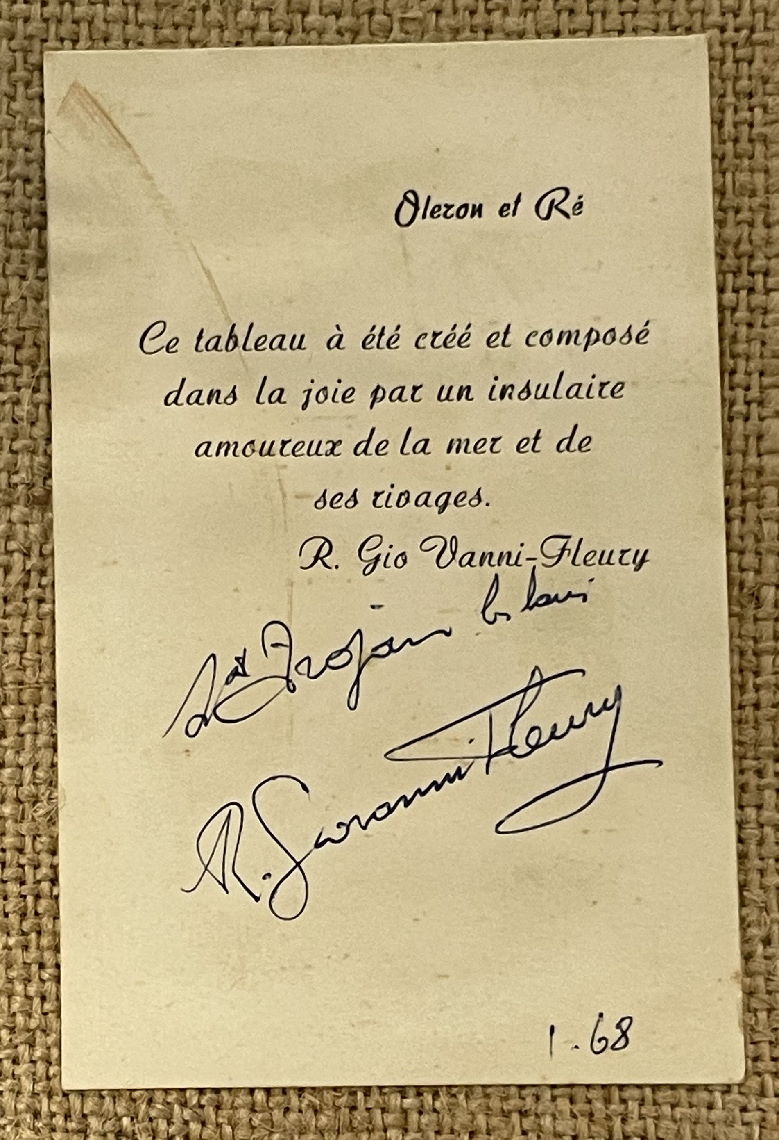 Oleron et Ré
Ce tableau à été créé et composé
dans la joie par un insulaire
amoureux de la mer et de
ses rivages.
R. Gio Vanni-Fleury
St Trojan les bains
R. Giovanni Fleury
1.68